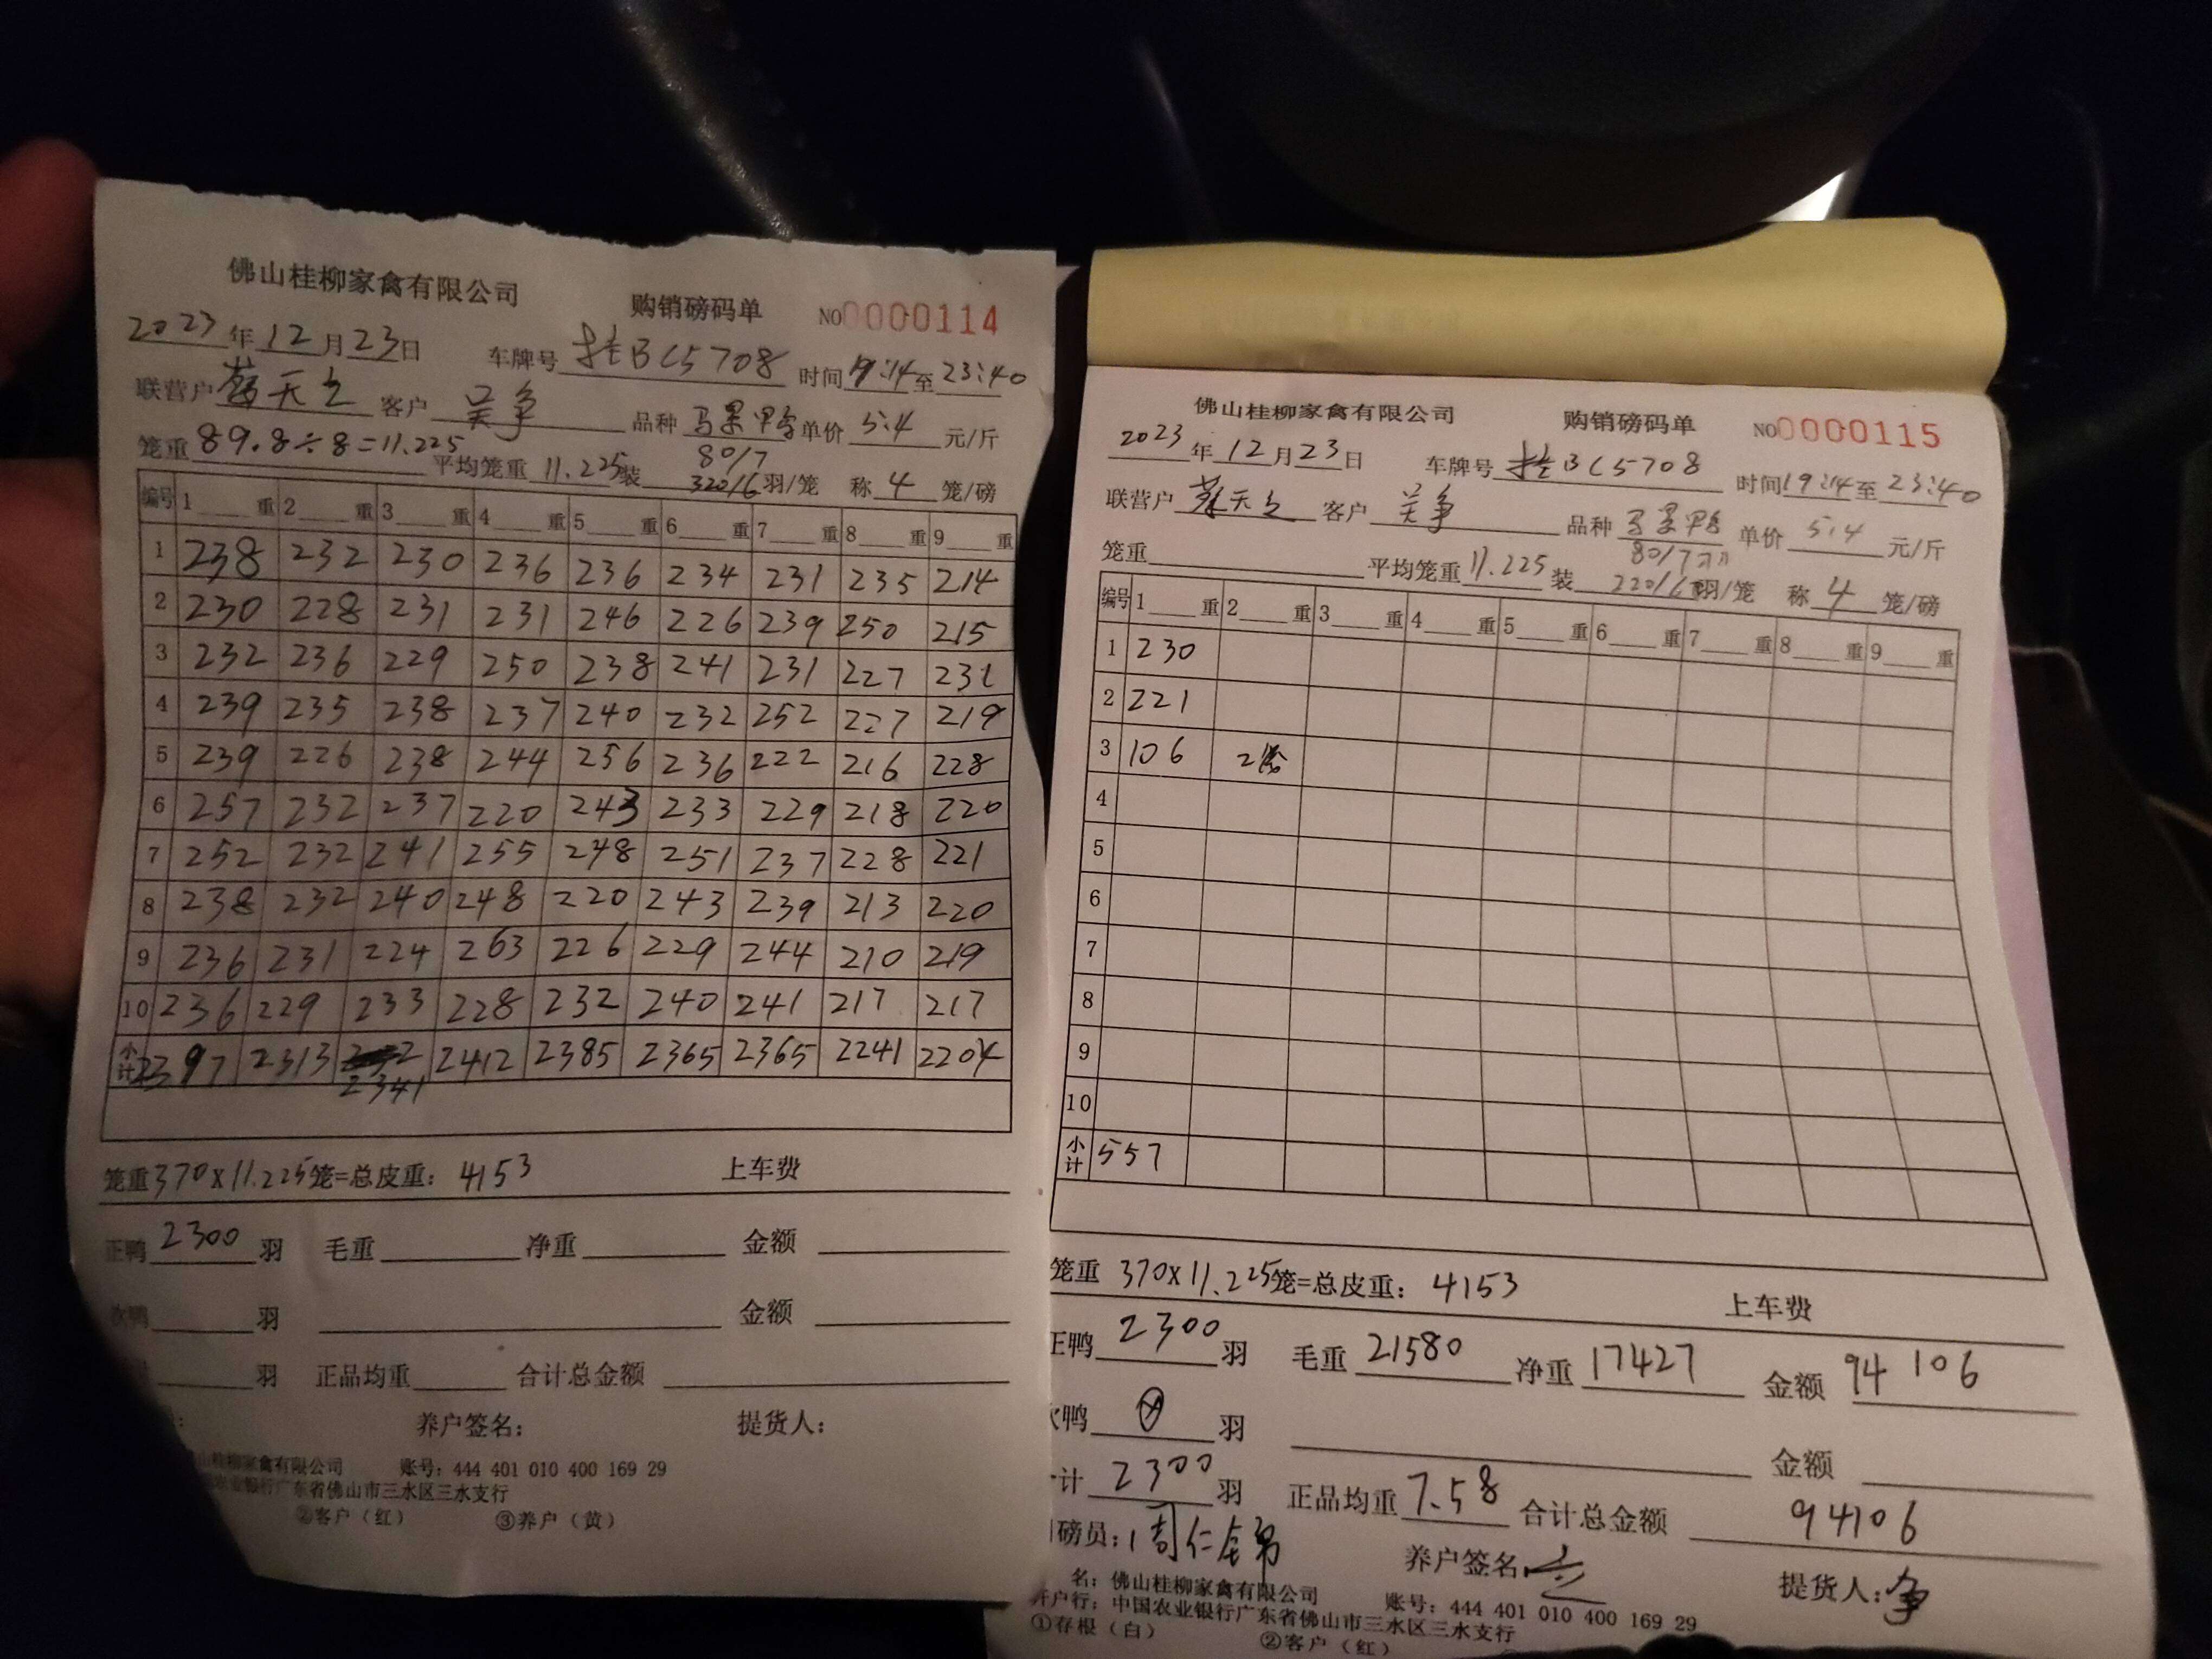 佛山桂柳家禽有限公司 购销磅码单 NO0000114
2023年12月23日 车牌号 桂BC5708 时间19:14至23:40
联营户 客户 吴争 品种 单价 5.4 元/斤
笼重 89.8÷8=11.225 平均笼重 11.225 装 80/7 320/6 羽/笼 称 4 笼/磅
编号 1 重 2 重 3 重 4 重 5 重 6 重 7 重 8 重 9 重
1 238 232 230 236 236 234 231 235 214
2 230 228 231 231 246 226 239 250 215
3 232 236 229 250 238 241 231 227 231
4 239 235 238 237 240 232 252 227 219
5 239 226 238 244 256 236 222 216 228
6 257 232 237 220 243 233 229 218 220
7 252 232 241 255 248 251 237 228 221
8 238 232 240 248 220 243 239 213 220
9 236 231 224 263 226 229 244 210 219
10 236 229 233 228 232 240 241 217 217
小计 2397 2313 2341 2412 2385 2365 2365 2241 2204
笼重370×11.225笼=总皮重: 4153 上车费
正鸭 2300 羽 毛重 净重 金额
次鸭 羽 金额
羽 正品均重 合计总金额
养户签名: 提货人:
山桂柳家禽有限公司 账号: 444 401 010 400 169 29
农业银行广东省佛山市三水区三水支行
②客户(红) ③养户(黄)
佛山桂柳家禽有限公司 购销磅码单 NO0000115
2023年12月23日 车牌号 桂BC5708 时间19:14至23:40
联营户 客户 吴争 品种 单价 5.4 元/斤
笼重 平均笼重 11.225 装 80/7 羽/笼 称 4 笼/磅
编号 1 重 2 重 3 重 4 重 5 重 6 重 7 重 8 重 9 重
1 230
2 221
3 106 2
4
5
6
7
8
9
10
小计 557
笼重 370×11.225笼=总皮重: 4153 上车费
正鸭 2300 羽 毛重 21580 净重 17427 金额 94106
次鸭 羽 金额
计 2300 羽 正品均重 7.58 合计总金额 94106
磅员: 养户签名 提货人: 争
名: 佛山桂柳家禽有限公司 账号: 444 401 010 400 169 29
开户行: 中国农业银行广东省佛山市三水区三水支行
①存根(白) ②客户(红)